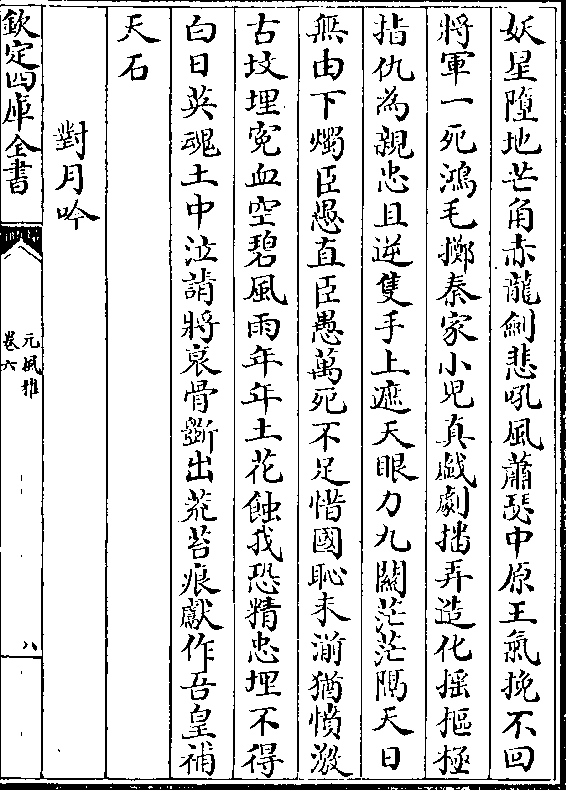 妖星墮地芒角赤龍劍悲吼風蕭瑟中原王氣挽不回
將軍一死鴻毛擲秦家小兒真戯劇播弄造化揺樞極
指仇為親忠且逆隻手上遮天眼力九闗茫茫隔天日
無由下燭臣愚直臣愚萬死不足惜國恥未湔猶憤激
古墳埋寃血空碧風雨年年土花蝕我恐精忠埋不得
白日英魂土中泣請將哀骨斵出荒苔痕獻作吾皇補
天石
對月吟
欽定四庫全書
元風雅
卷六
八